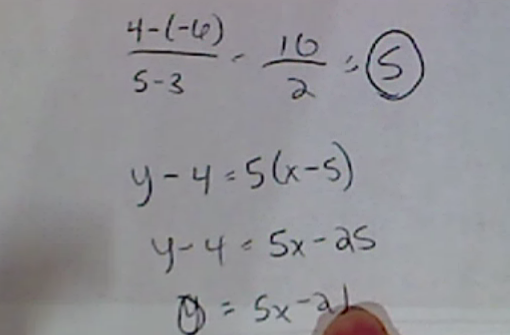 4-(-6)/5-3 = 10/2 = 5
y-4=5(x-5)
y-4=5x-25
y=5x-21